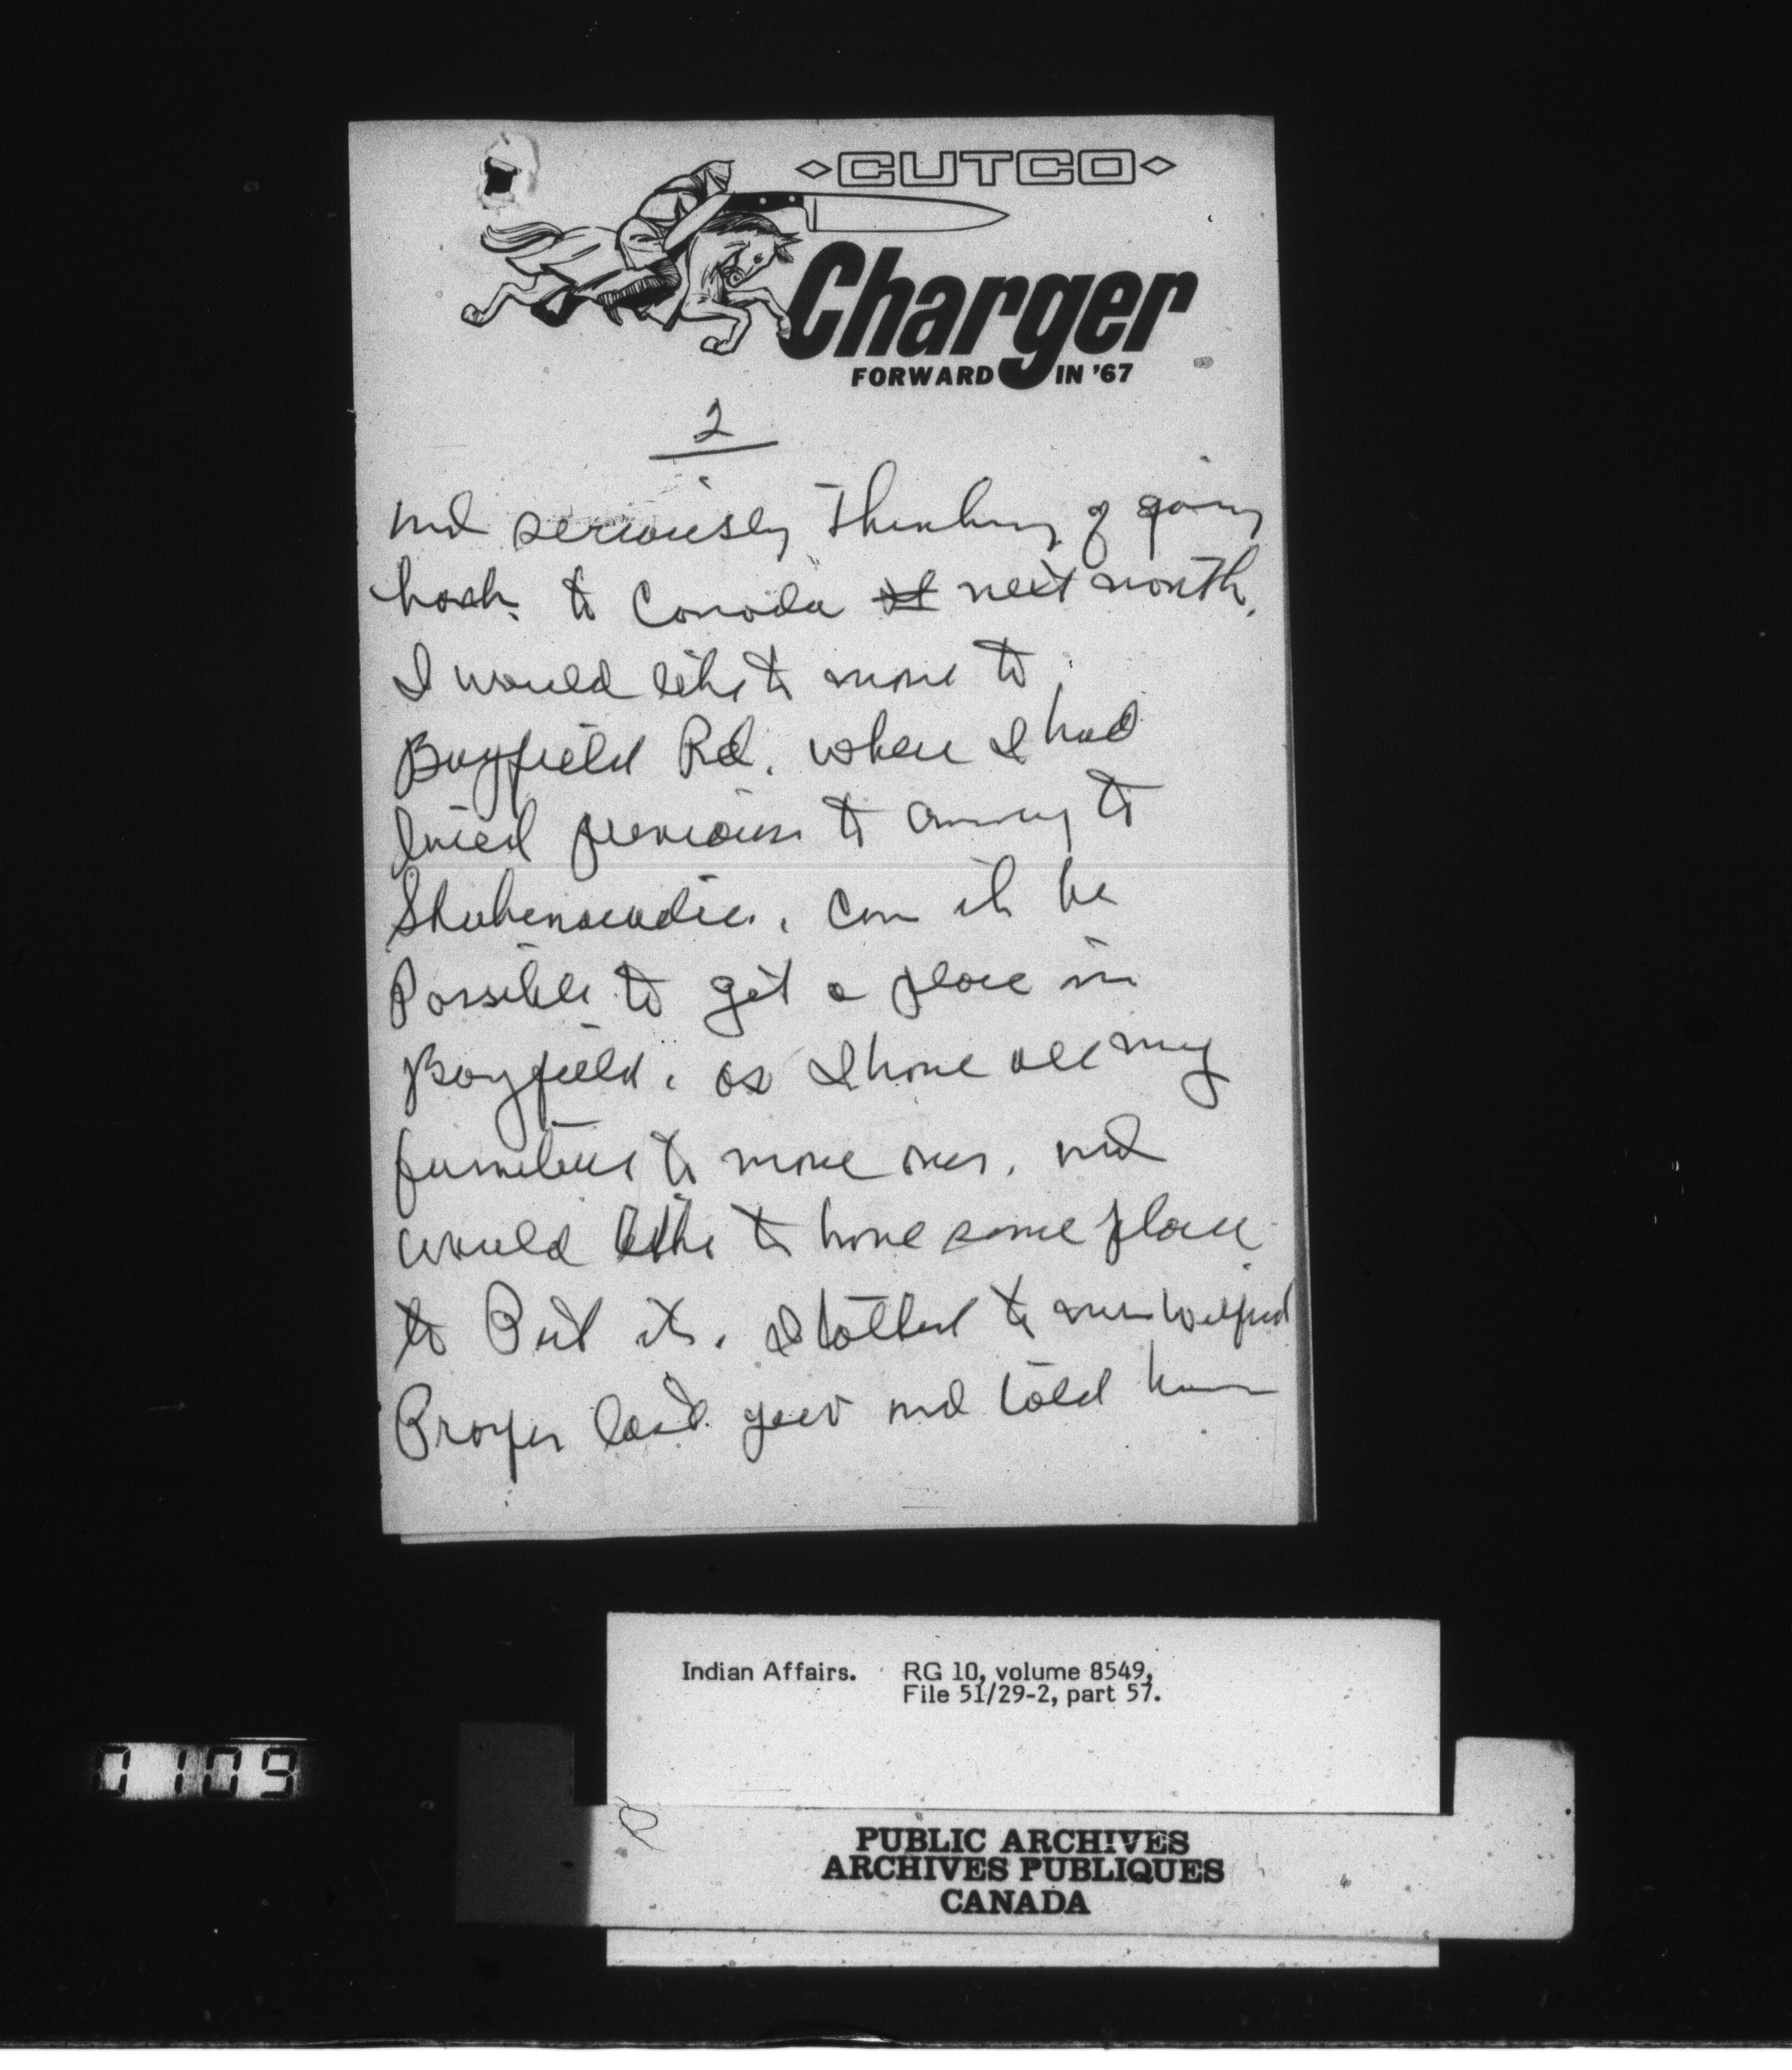 CUTCO
Charger
FORWARD IN '67
2
and seriously thinking of going
back to Canada next month.
I would like to move to
Bayfield Rd. where I had
lived previous to coming to
Shubenacadie. Can it be
Possible to get a place in
Bayfield. as I have all my
furniture to move over. and
would like to have some place
to Put it. I talked to Wilfred
Prosper last year and told him
Indian Affairs. RG 10, volume 8549,
File 51/29-2, part 57.
0109
PUBLIC ARCHIVES
ARCHIVES PUBLIQUES
CANADA